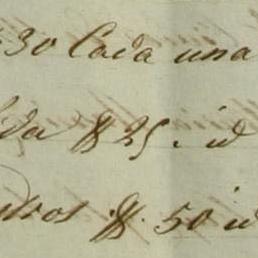 30 Cada una
da $ 25. id
dros $. 50 id